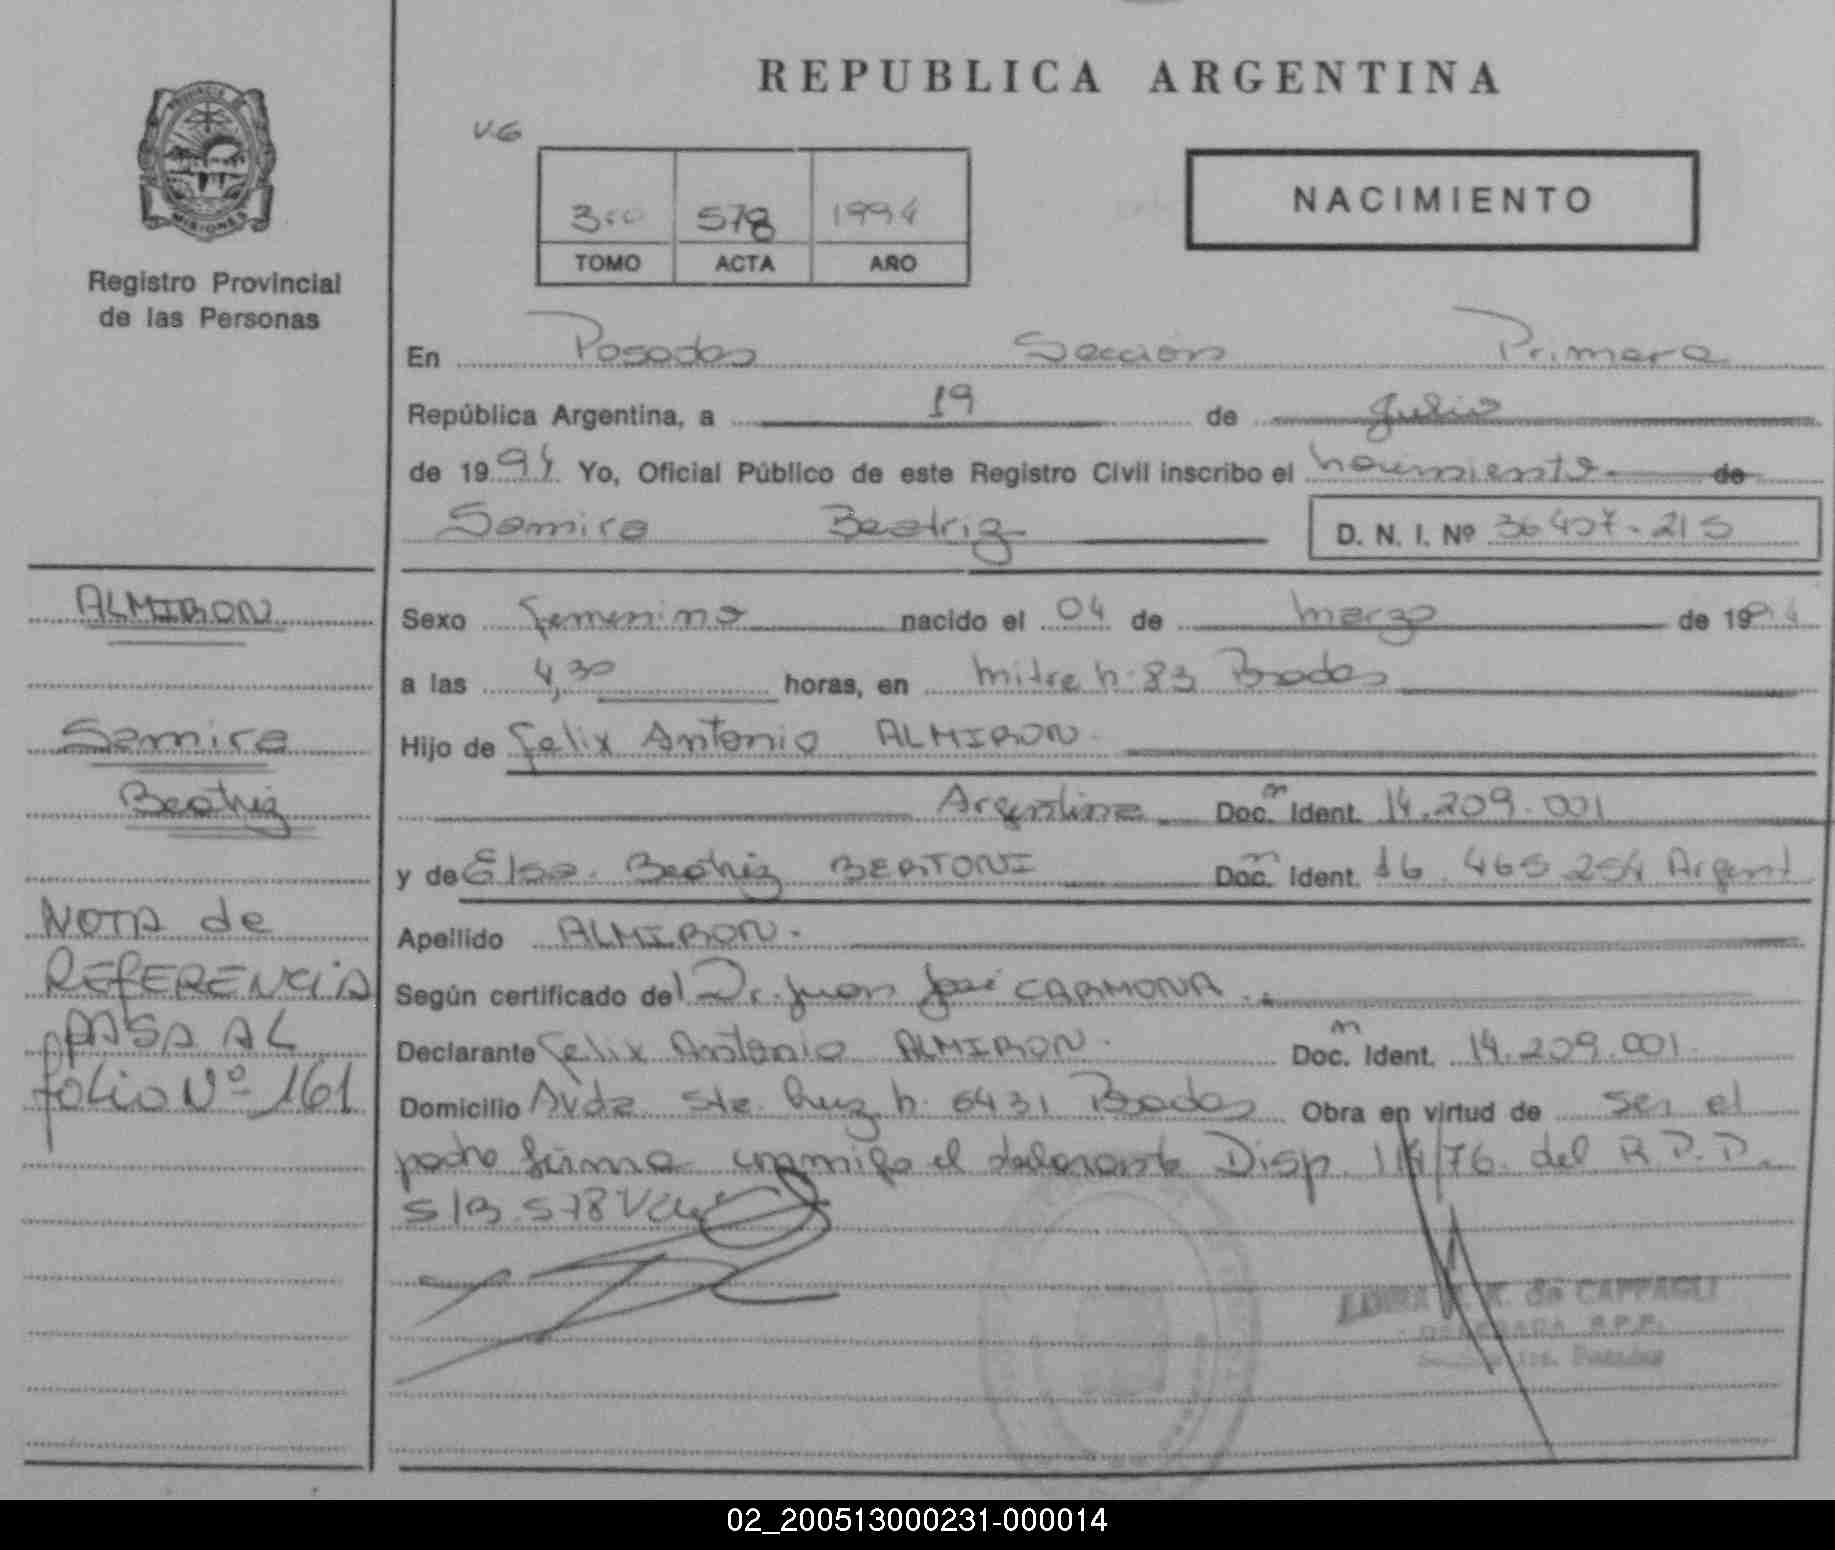 REPUBLICA ARGENTINA
V.6
PROVINCIA DE
MISIONES
Registro Provincial
de las Personas
3ro 578 1994
TOMO ACTA AÑO
NACIMIENTO
En Posadas Sección Primera
República Argentina, a 19 de Julio
de 1994 Yo, Oficial Público de este Registro Civil inscribo el nacimiento de
Samira Beatriz D. N. I. Nº 36.407.215
ALMIRON
Sexo femenino nacido el 04 de marzo de 1994
a las 4,30 horas, en Mitre n. 83 Posadas
Samira
Hijo de Felix Antonio ALMIRON
Beatriz
Argentina Doc. n Ident. 14.209.001
y de Elsa Beatriz BERTONI Doc. n Ident. 16.465.254 Argent
NOTA de
Apellido ALMIRON.
REFERENCIA
Según certificado del Dr. Juan José CARMONA
PASA AL
Declarante Felix Antonio ALMIRON. Doc. n Ident. 14.209.001.
folio Nº 161
Domicilio Avda Sta. Cruz n. 6431 Posadas Obra en virtud de ser el
padre firma conmigo el declarante Disp. 114/76 del R.P.P.
S/B 578
de CAPPAGLI
R.P.P.
Posadas
02_200513000231-000014